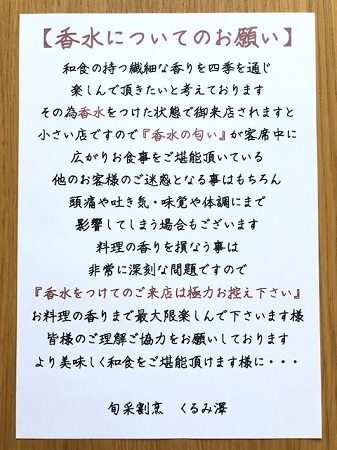 【香水についてのお願い】
和食の持つ繊細な香りを四季を通じ
楽しんで頂きたいと考えております
その為香水をつけた状態で御来店されますと
小さい店ですので『香水の匂い』が客席中に
広がりお食事をご堪能頂いている
他のお客様のご迷惑となる事はもちろん
頭痛や吐き気・味覚や体調にまで
影響してしまう場合もございます
料理の香りを損なう事は
非常に深刻な問題ですので
『香水をつけてのご来店は極力お控え下さい』
お料理の香りまで最大限楽しんで下さいます様
皆様のご理解ご協力をお願いしております
より美味しく和食をご堪能頂けます様に・・・
旬采割烹 くるみ澤